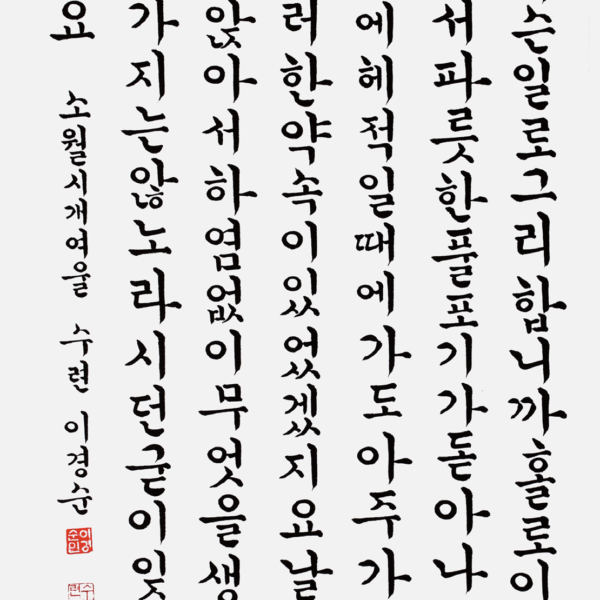 슨일로그리합니까홀로이
서파릇한풀포기가돋아나
에헤적일때에가도아주가
러한약속이있었겠지요날
앉아서하염없이무엇을생
가지는않노라시던굳이잊
요 소월시개여울 수련 이경순
이경순인
수련